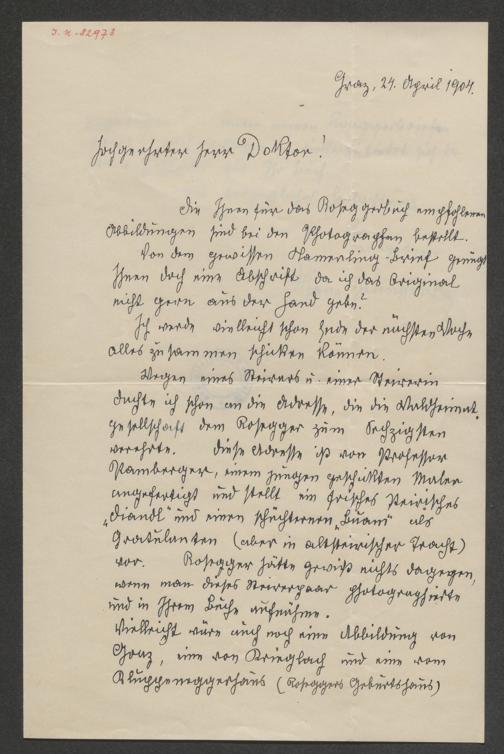 I. N. 82978
Graz, 24. April 1904.
Hochgeehrter Herr Doktor!
Die Ihnen für das Roseggerbuch empfohlenen
Abbildungen sind bei den Photographen bestellt.
Von dem gewissen Hamerling-Brief genügt
Ihnen doch eine Abschrift da ich das Original
nicht gern aus der Hand gebe?
Ich werde vielleicht schon Ende der nächsten Woche
alles zusammen schicken können.
Wegen eines Steirers u. einer Steirerin
dachte ich schon an die Adresse, die die Waldheimat-
gesellschaft dem Rosegger zum Sechzigsten
verehrte. Diese Adresse ist von Professor
Pamberger, einem jungen geschickten Maler
angefertigt und stellt ein frisches steirisches
„Diandl“ und einen schüchternen „Buam“ als
Gratulanten (aber in altsteirischer Tracht)
vor. Rosegger hätte gewiß nichts dagegen,
wenn man dieses Steirerpaar photographierte
und in Ihrem Buche aufnähme.
Vielleicht wäre auch noch eine Abbildung von
Graz, eine von Krieglach und eine vom
Kluppeneggerhaus (Roseggers Geburtshaus)